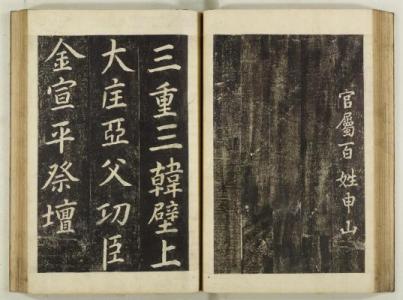 官屬百姓申山
三重三韓壁上
大匡亞父功臣
金宣平祭壇